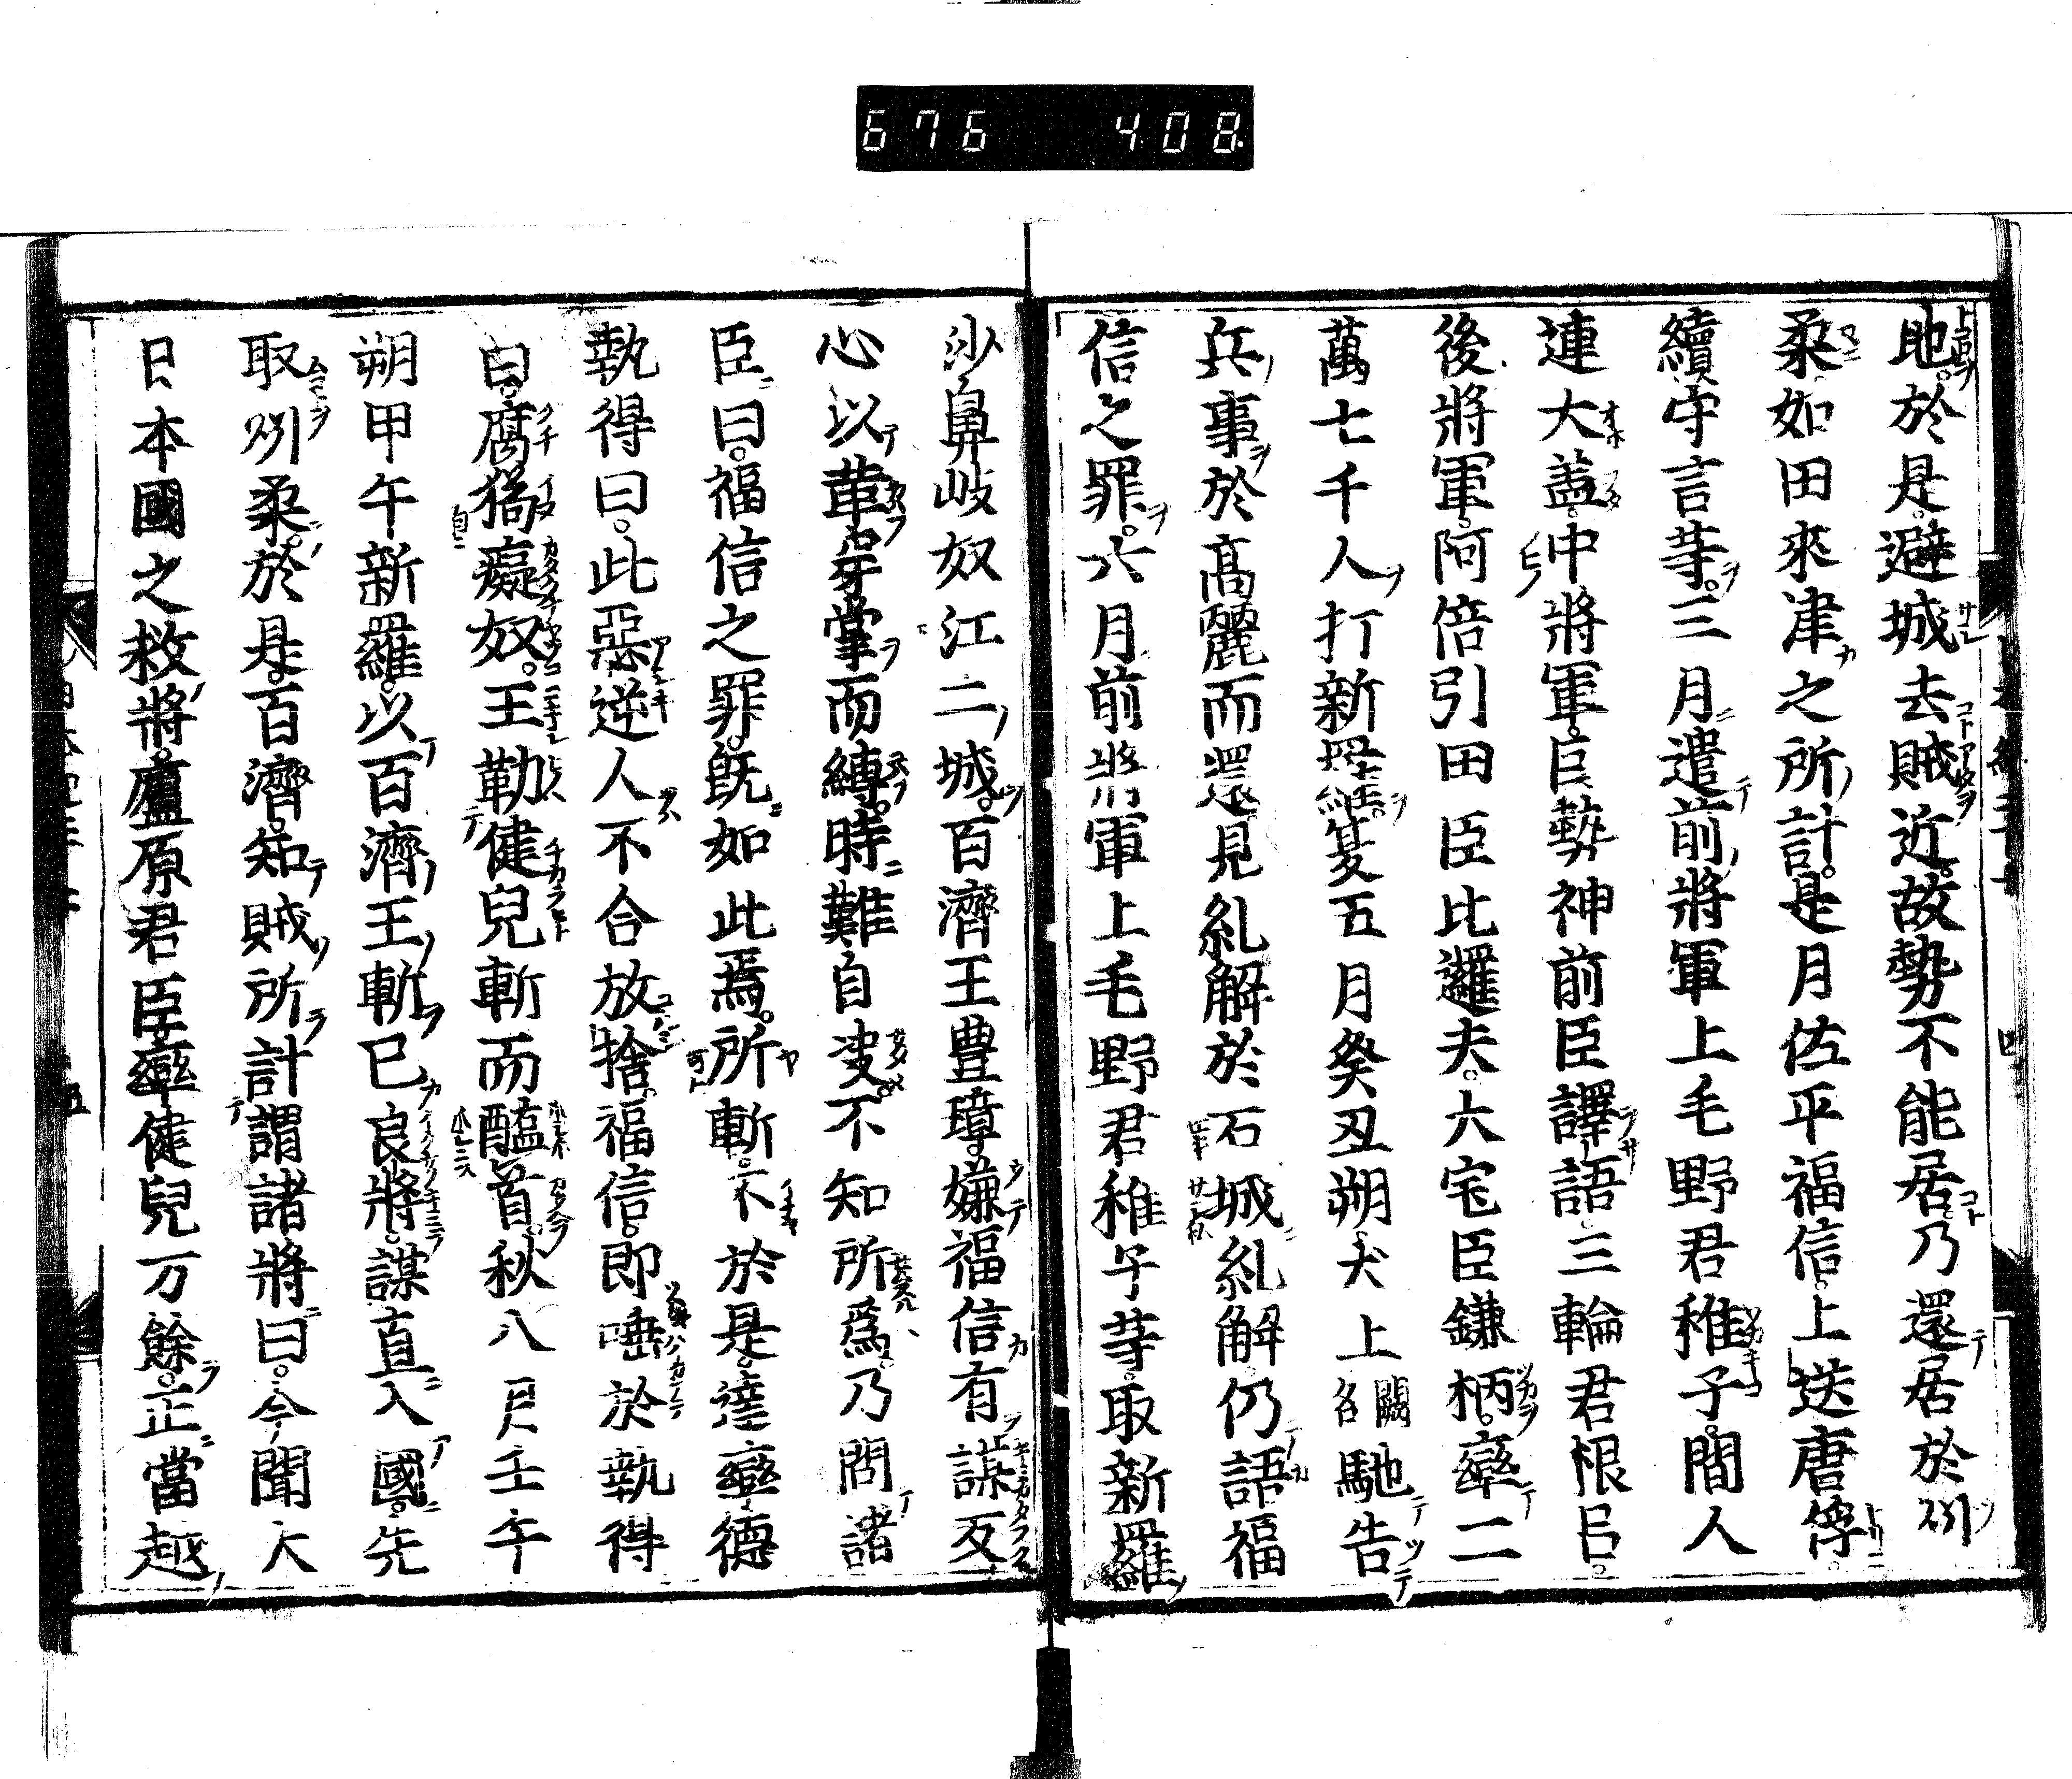 676 408
地於是避城去賊近故勢不能居乃還居於州
柔如田來津之所計是月佐平福信上送唐俘
續守言等三月遣前將軍上毛野君稚子間人
連大盖中將軍巨勢神前臣譯語三輪君根臣
後將軍阿倍引田臣比邏夫大宅臣鎌柄率二
萬七千人打新羅夏五月癸丑朔犬上闕名馳告
兵事於高麗而還見糺解於石城糺解仍語福
信之罪六月前將軍上毛野君稚子等取新羅
沙鼻岐奴江二城百濟王豊璋嫌福信有謀反
心以革穿掌而縛時難自决不知所爲乃問諸
臣曰福信之罪既如此焉所斬不於是達率德
執得曰此惡逆人不合放捨福信即唾於執得
曰腐狗癡奴王勒健兒斬而醢首秋八月壬午
朔甲午新羅以百濟王斬已良將謀直入國先
取州柔於是百濟知賊所計謂諸將曰今聞大
日本國之救將廬原君臣率健兒万餘正當越